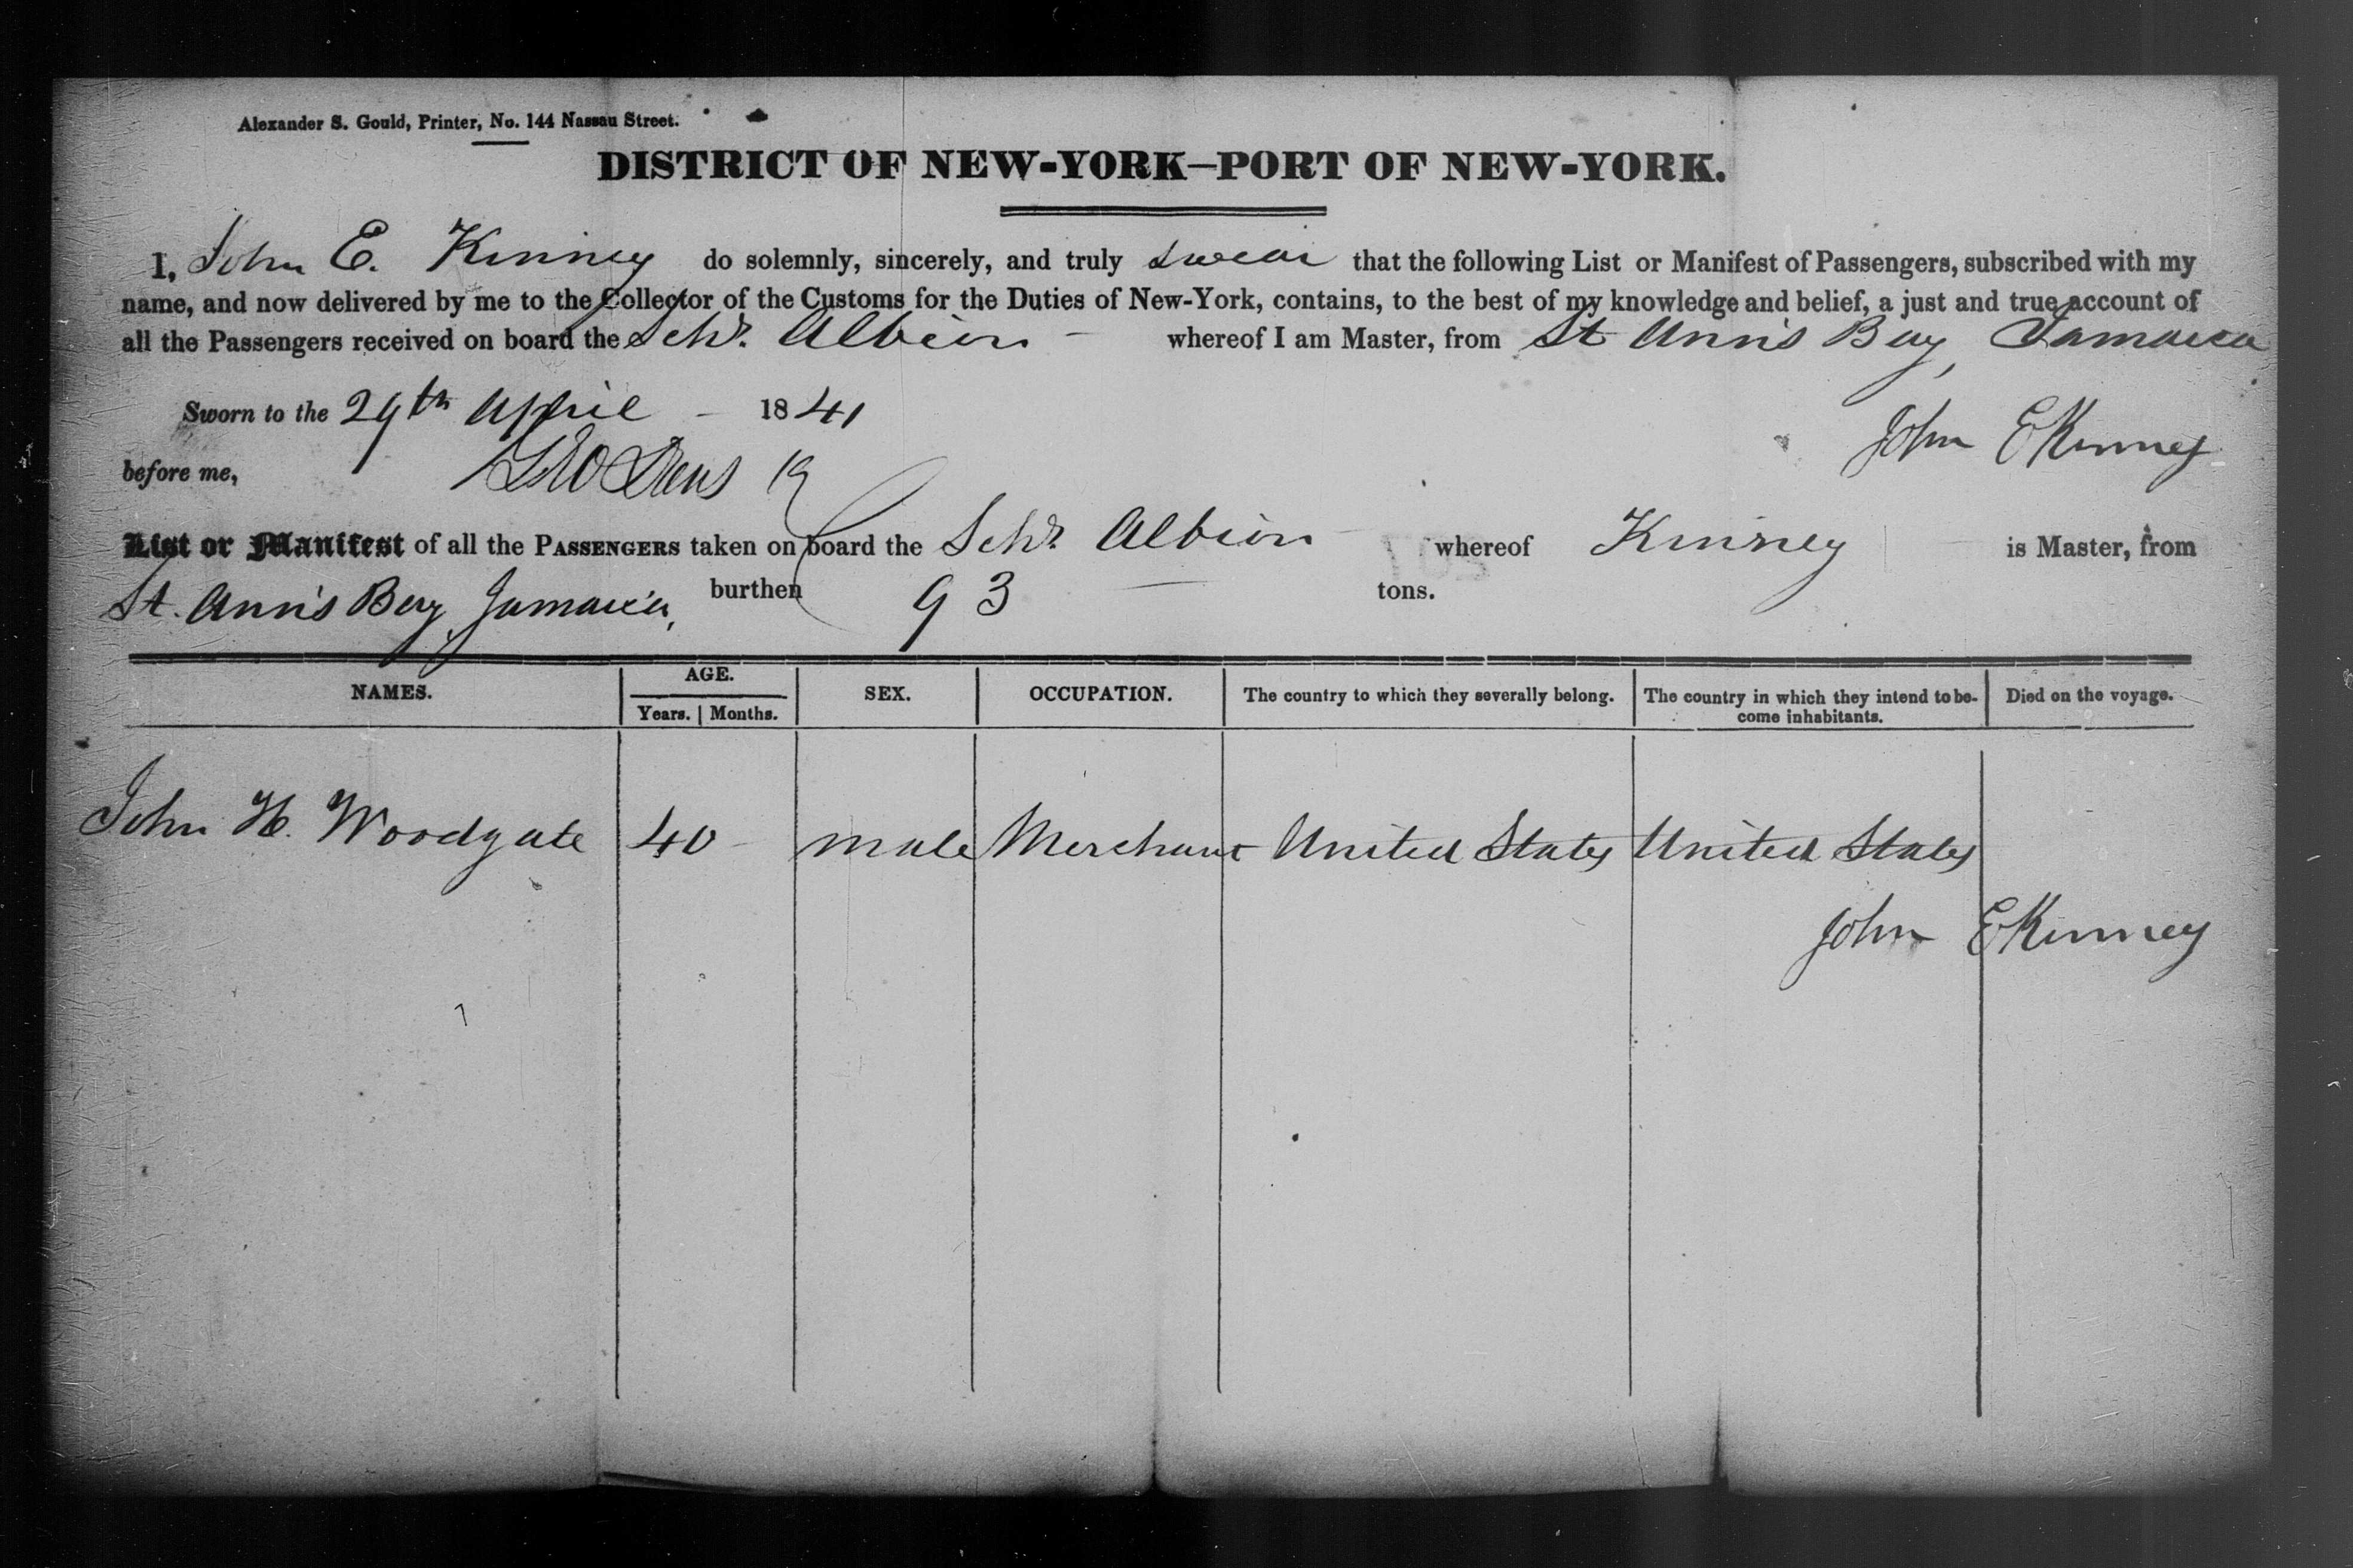 Alexander S. Gould, Printer, No. 144 Nassau Street.
DISTRICT OF NEW-YORK—PORT OF NEW-YORK.
I, John E. Kinney do solemnly, sincerely, and truly swear that the following List or Manifest of Passengers, subscribed with my
name, and now delivered by me to the Collector of the Customs for the Duties of New-York, contains, to the best of my knowledge and belief, a just and true account of
all the Passengers received on board the Schr. Albion whereof I am Master, from St Ann's Bay, Jamaica
Sworn to the 29th April 1841
John E Kinney
before me,
List or Manifest of all the PASSENGERS taken on board the Schr. Albion whereof Kinney is Master, from
St. Ann's Bay, Jamaica, burthen 93 tons.
NAMES. AGE. Years. Months. SEX. OCCUPATION. The country to which they severally belong. The country in which they intend to be-come inhabitants. Died on the voyage.
John H. Woodgate 40 male Merchant United States United States
John E Kinney